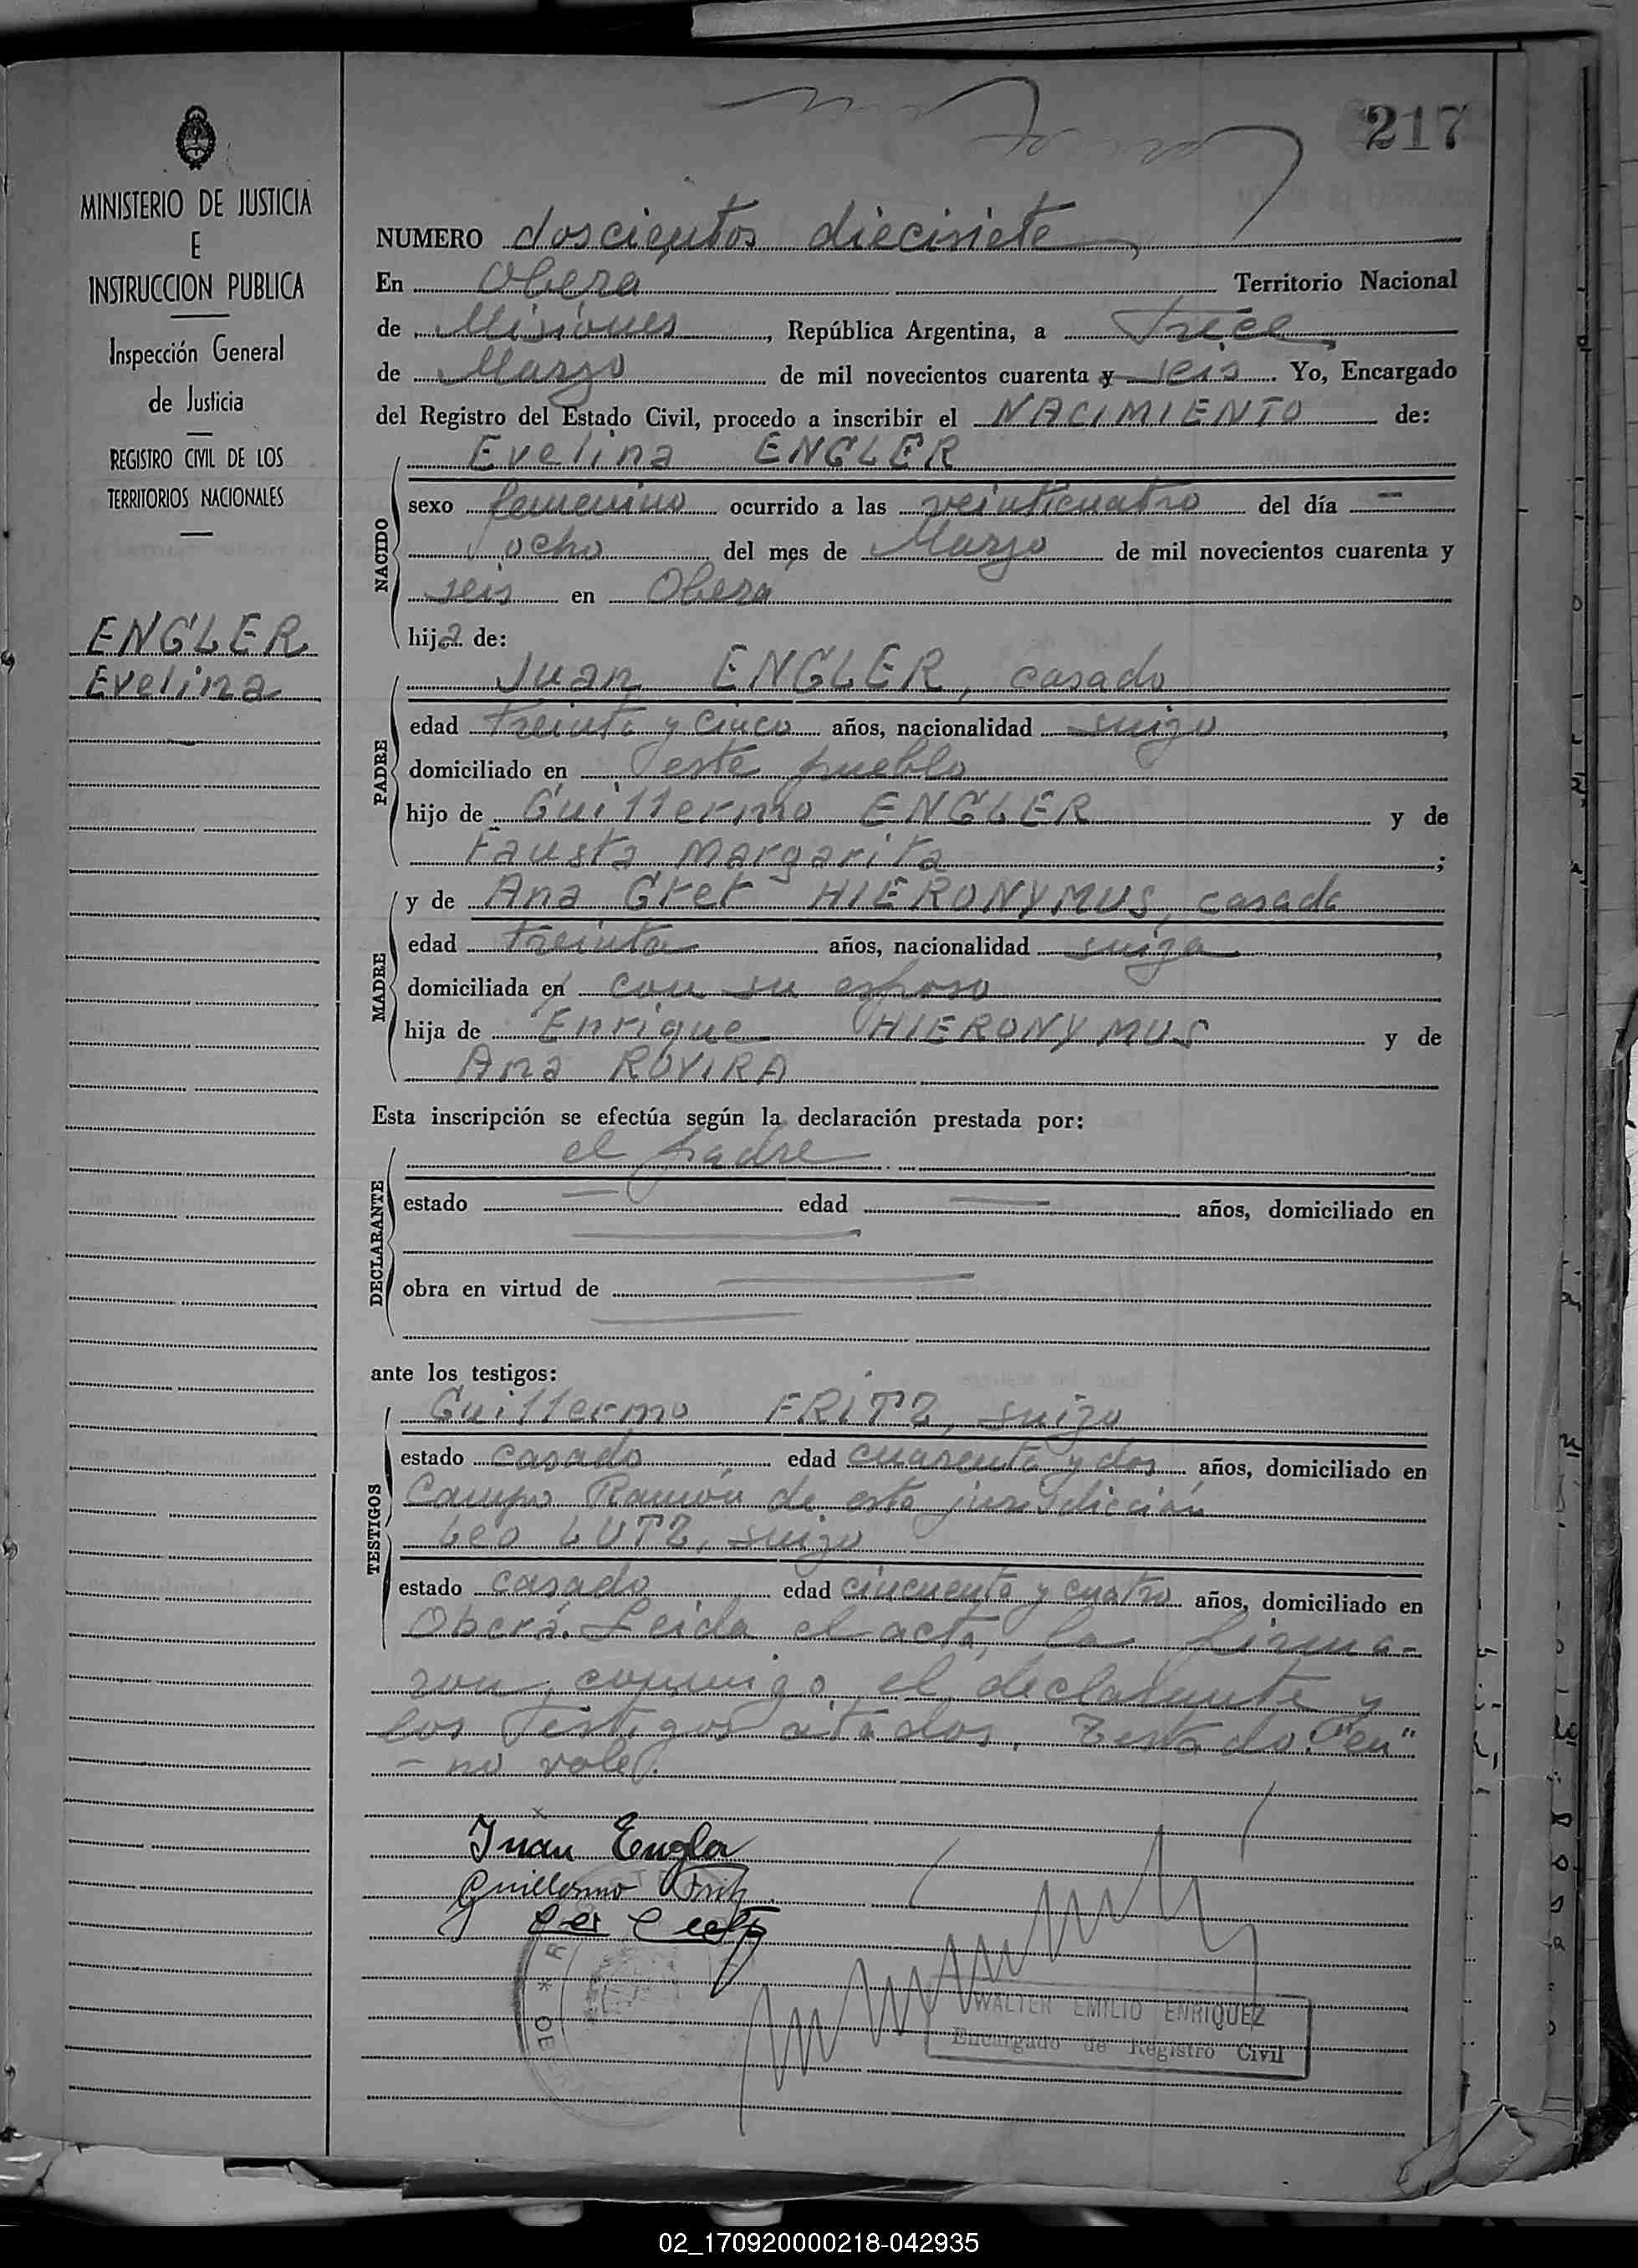 217
MINISTERIO DE JUSTICIA
E
INSTRUCCION PUBLICA
Inspección General
de Justicia
REGISTRO CIVIL DE LOS
TERRITORIOS NACIONALES
ENGLER
Evelina
NUMERO doscientos diecisiete
En Oberá Territorio Nacional
de Misiones, República Argentina, a Trece
de Marzo de mil novecientos cuarenta y seis. Yo, Encargado
del Registro del Estado Civil, procedo a inscribir el NACIMIENTO de:
Evelina ENGLER
NACIDO
sexo femenino ocurrido a las veinticuatro del día —
ocho del mes de Marzo de mil novecientos cuarenta y
seis en Oberá
hija de:
Juan ENGLER, casado
PADRE
edad treinta y cinco años, nacionalidad suizo,
domiciliado en este pueblo
hijo de Guillermo ENGLER y de
Fausta Margarita;
y de Ana Gret HIERONYMUS, casada
MADRE
edad treinta años, nacionalidad suiza,
domiciliada en con su esposo
hija de Enrique HIERONYMUS y de
Ana ROVIRA
Esta inscripción se efectúa según la declaración prestada por:
el padre
DECLARANTE
estado — edad — años, domiciliado en
obra en virtud de —
ante los testigos:
Guillermo FRITZ, suizo
TESTIGOS
estado casado edad cuarenta y dos años, domiciliado en
Campo Ramón de esta jurisdicción
Leo LUTZ, suizo
estado casado edad cincuenta y cuatro años, domiciliado en
Oberá. Leida el acta, la firma-
ron conmigo, el declarante y
los testigos citados. Testado: "en"
- no vale.
Juan Engler
Guillermo Fritz
Leo Lutz
WALTER EMILIO ENRIQUEZ
Encargado de Registro Civil
02_170920000218-042935